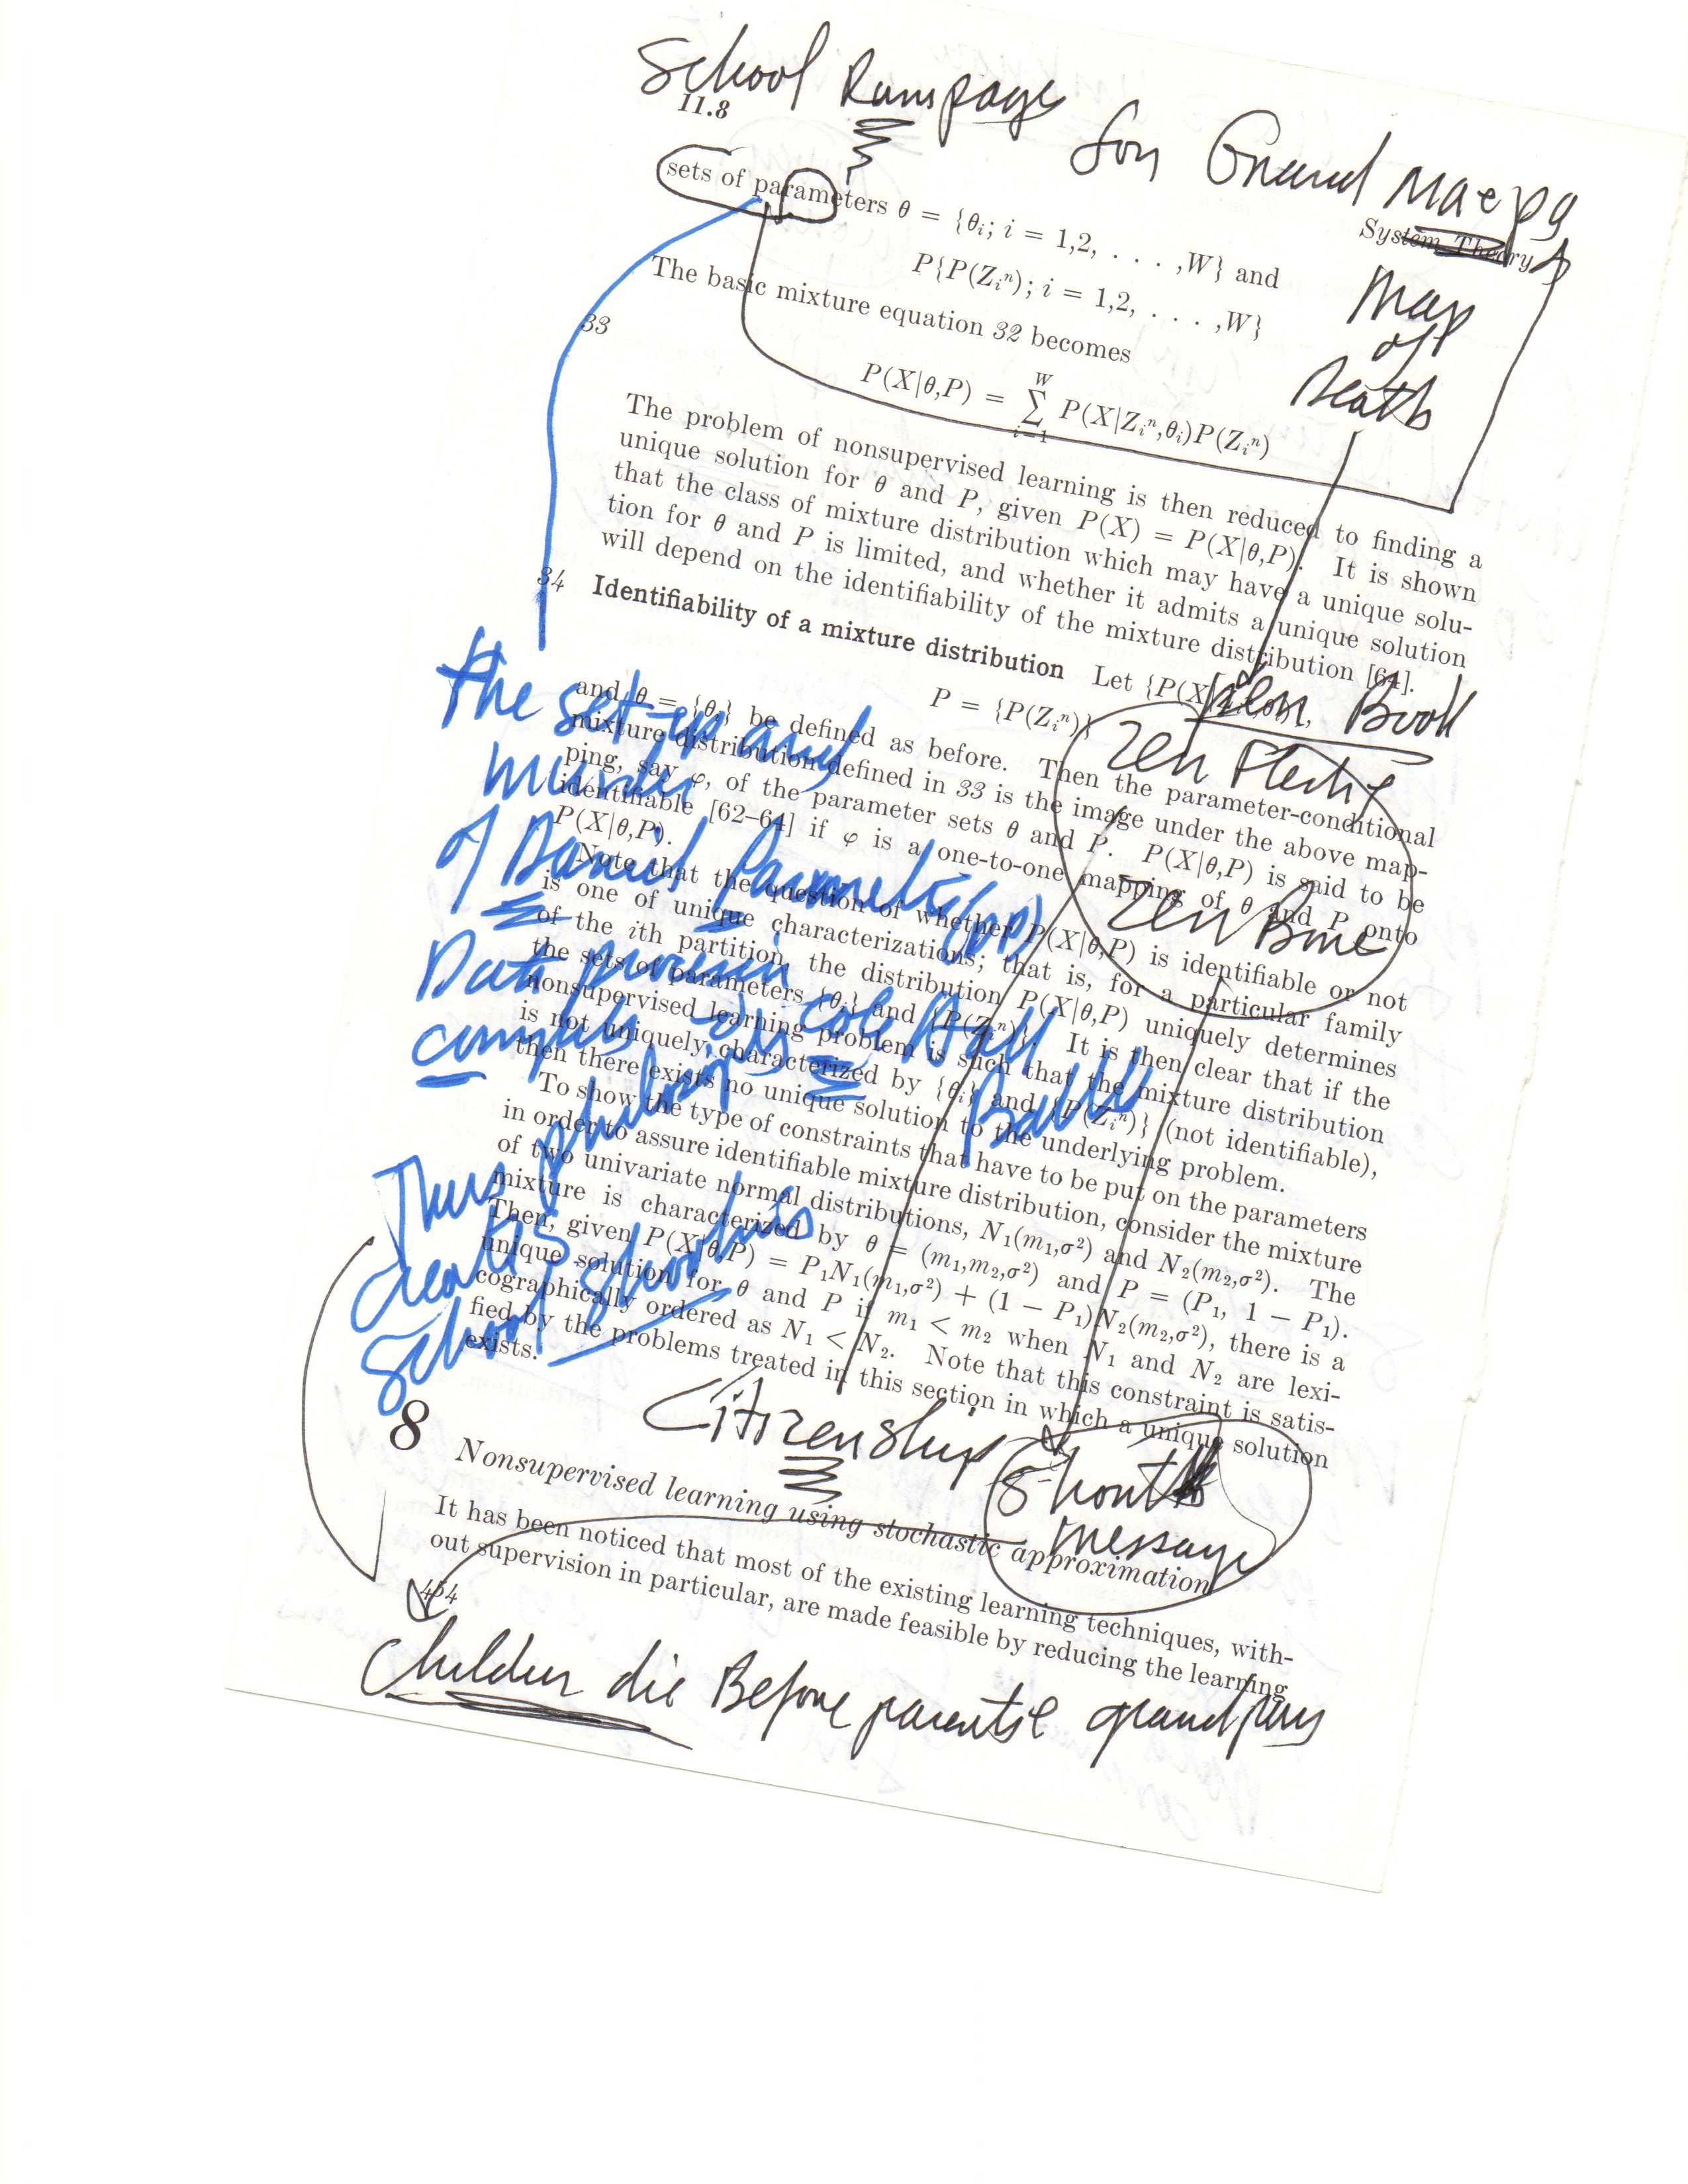 School Rampage
11.8
for Grand
sets of parameters θ = {θᵢ; i = 1,2, . . . ,W} and
System Theory
P{P(Zᵢⁿ); i = 1,2, . . . ,W}
Map
of
Death
The basic mixture equation 32 becomes
33
P(X|θ,P) = Σᵢ₌₁ᵂ P(X|Zᵢⁿ,θᵢ)P(Zᵢⁿ)
The problem of nonsupervised learning is then reduced to finding a
unique solution for θ and P, given P(X) = P(X|θ,P). It is shown
that the class of mixture distribution which may have a unique solu-
tion for θ and P is limited, and whether it admits a unique solution
will depend on the identifiability of the mixture distribution [64].
34 Identifiability of a mixture distribution Let {P(X
Book
P = {P(Zᵢⁿ)}
Zen
Zen
and θ = {θᵢ} be defined as before. Then the parameter-conditional
mixture distribution defined in 33 is the image under the above map-
ping, say φ, of the parameter sets θ and P. P(X|θ,P) is said to be
identifiable [62–64] if φ is a one-to-one mapping of θ and P onto
P(X|θ,P).
the set-up and
murder
of Daniel Parmeter (pp)
Data
Cole Hall
Battle
Thus
death is
School
Note that the question of whether P(X|θ,P) is identifiable or not
is one of unique characterizations; that is, for a particular family
of the ith partition, the distribution P(X|θ,P) uniquely determines
the sets of parameters {θᵢ} and {P(Zᵢⁿ)}. It is then clear that if the
nonsupervised learning problem is such that the mixture distribution
is not uniquely characterized by {θᵢ} and {P(Zᵢⁿ)} (not identifiable),
then there exists no unique solution to the underlying problem.
To show the type of constraints that have to be put on the parameters
in order to assure identifiable mixture distribution, consider the mixture
of two univariate normal distributions, N₁(m₁,σ²) and N₂(m₂,σ²). The
mixture is characterized by θ = (m₁,m₂,σ²) and P = (P₁, 1 − P₁).
Then, given P(X|θ,P) = P₁N₁(m₁,σ²) + (1 − P₁)N₂(m₂,σ²), there is a
unique solution for θ and P if m₁ < m₂ when N₁ and N₂ are lexi-
cographically ordered as N₁ < N₂. Note that this constraint is satis-
fied by the problems treated in this section in which a unique solution
exists.
Citizenship
8 Nonsupervised learning using stochastic approximation
message
It has been noticed that most of the existing learning techniques, with-
out supervision in particular, are made feasible by reducing the learning
454
Children die Before